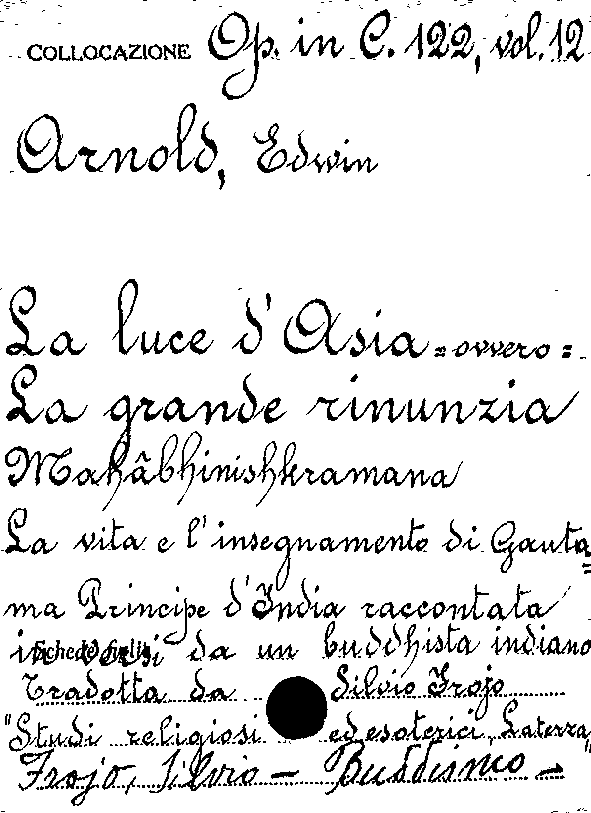 COLLOCAZIONE Op. in C. 122, vol. 12
Arnold, Edwin
La luce d'Asia =ovvero=
La grande rinunzia
Mahâbhinishkramana
La vita e l'insegnamento di Gauta=
ma Principe d'India raccontata
in versi da un buddhista indiano
Schede figlie
Tradotta da Silvio Trojo
"Studi religiosi ed esoterici, Laterza"
Trojo, Silvio - Buddismo -